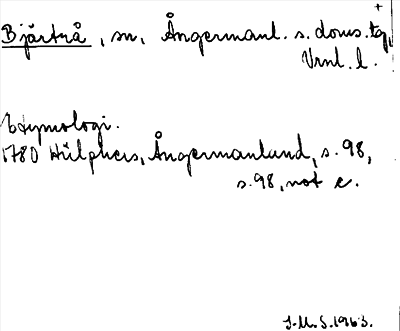 Bjärtrå, sn, Ångermanl. s. doms. tg,
Vrnl. l.
Etymologi.
1780 Hülphers, Ångermanland, s. 98,
s. 98, not e.
J.M.S. 1963.